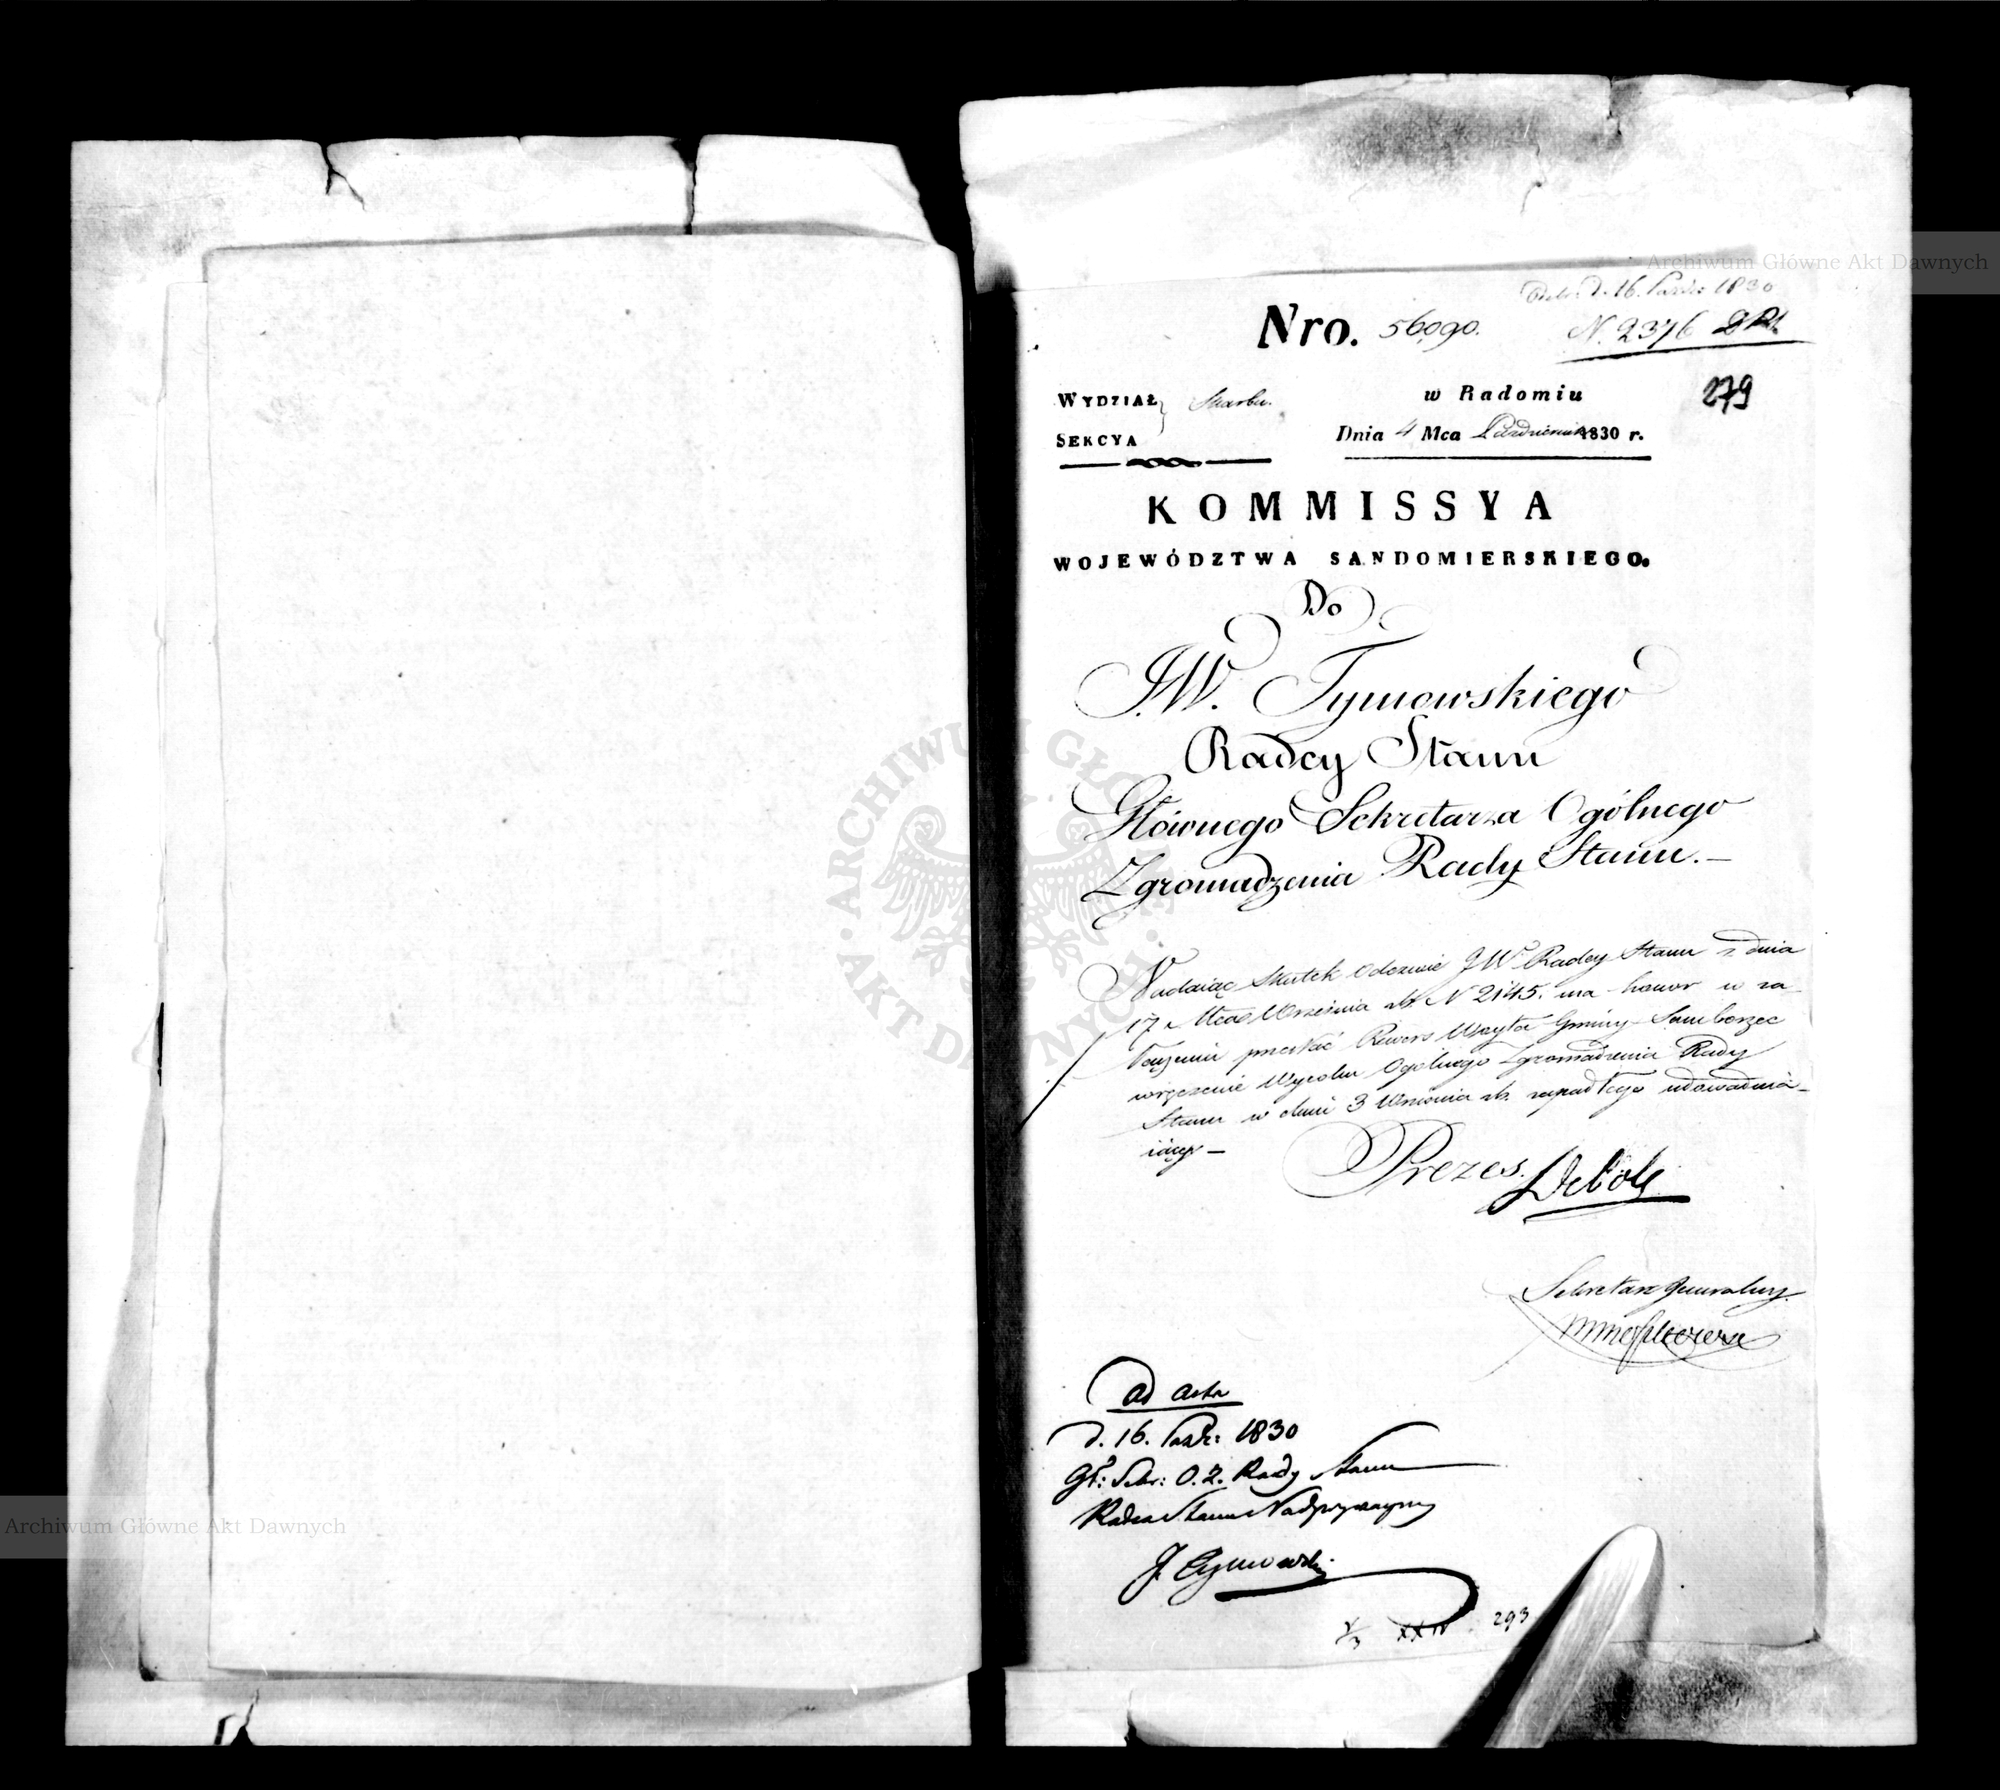 Archiwum Główne Akt Dawnych
d. 16. Paźdz: 1830
Nro. 56090.
N. 2376
279
WYDZIAŁ Skarbu.
SEKCYA
w Radomiu
Dnia 4 Mca Październik 1830 r.
KOMMISSYA
WOJEWÓDZTWA SANDOMIERSKIEGO.
Do
J.W. Tymowskiego
Radcy Stanu
Głównego Sekretarza Ogólnego
Zgromadzenia Rady Stanu.–
Skutek Odezwie JW Radcy Stanu z dnia
17. Mca Września N 2145. ma honor w za
łączeniu przesłać Rewers Wóyta Gminy Samborzec
wręczenie Wyroku Ogólnego Zgromadzenia Rady
Stanu w dniu 3 Września zapadłego udowadnia–
iący –
Prezes. Deboli
Sekretarz Generalny
ad acta
d. 16. Paźdz: 1830
Gł: Sekr: O. Z. Rady Stanu
Radca Stanu Nadzwyczajny
J. Tymowski
XXIV 293
ARCHIWUM GŁÓWNE AKT DAWNYCH
Archiwum Główne Akt Dawnych